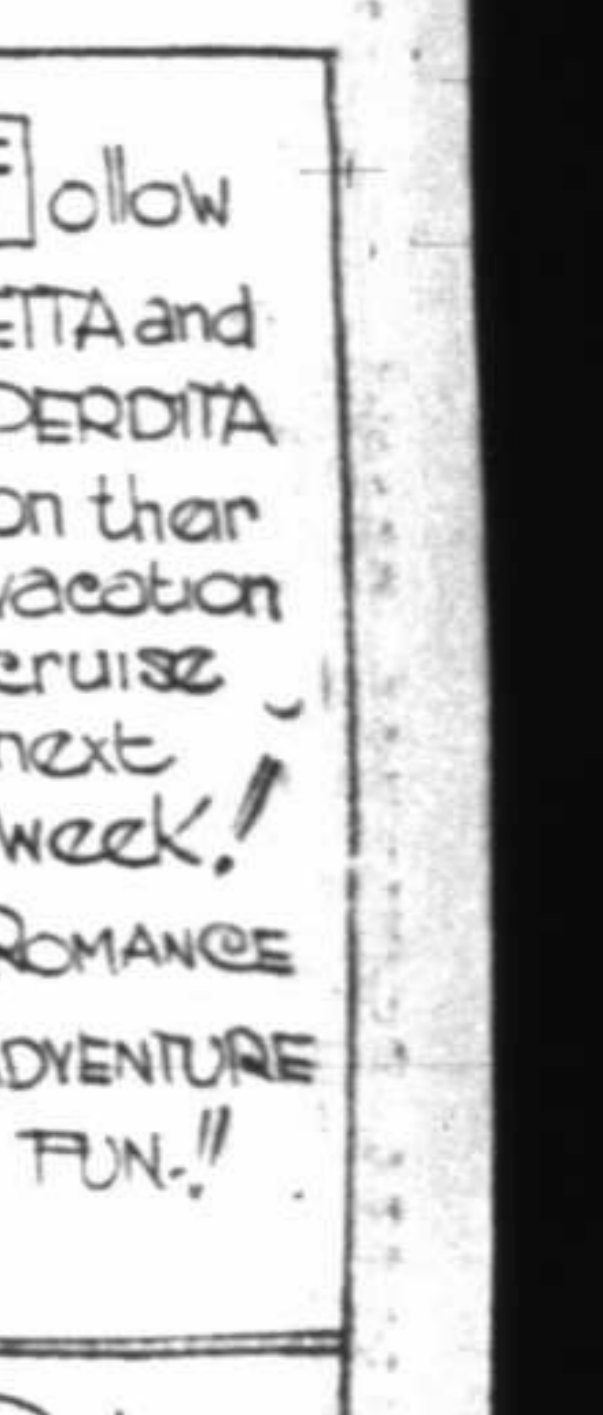 Follow
ETTA and
PERDITA
on ther
vacation
cruise
next
week!
ROMANCE
ADVENTURE
FUN-!!